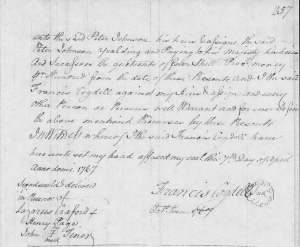 257
unto the said Peter Johnson his heirs & assigns the said
Peter Johnson Yealding and Paying to his Majesty his heirs
And Successors the quitrents of four Shill Proc money
Hundred from the date of these Presents and I the said
Francis Coydell against my Heirs & assigns and every
Other Person or Persons will Warrant and for ever defend
the above mentioned Premises by these Presents
In Witness whereof I the said Francis Coydell have
here unto set my hand affixed my seal this 7th Day of April
Anno dom 1767
Signd seald & deliverd
in Presence of
Henry Page
John
mark
Francis Coydell